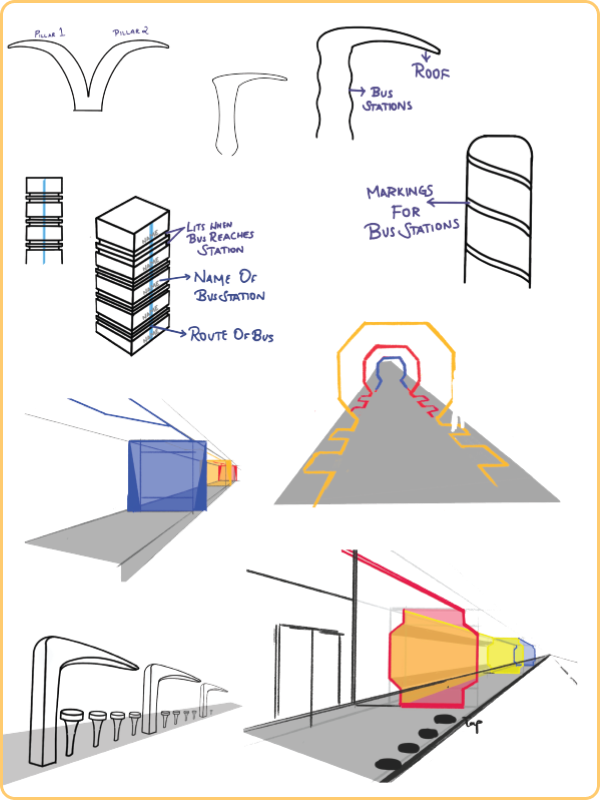 PILLAR 1
PILLAR 2
ROOF
BUS
STATIONS
MARKINGS
FOR
BUS STATIONS
LITS WHEN
BUS REACHES
STATION
NAME OF
BUSSTATION
ROUTE OF BUS
NAME
NAME
NAME
NAME
NAME